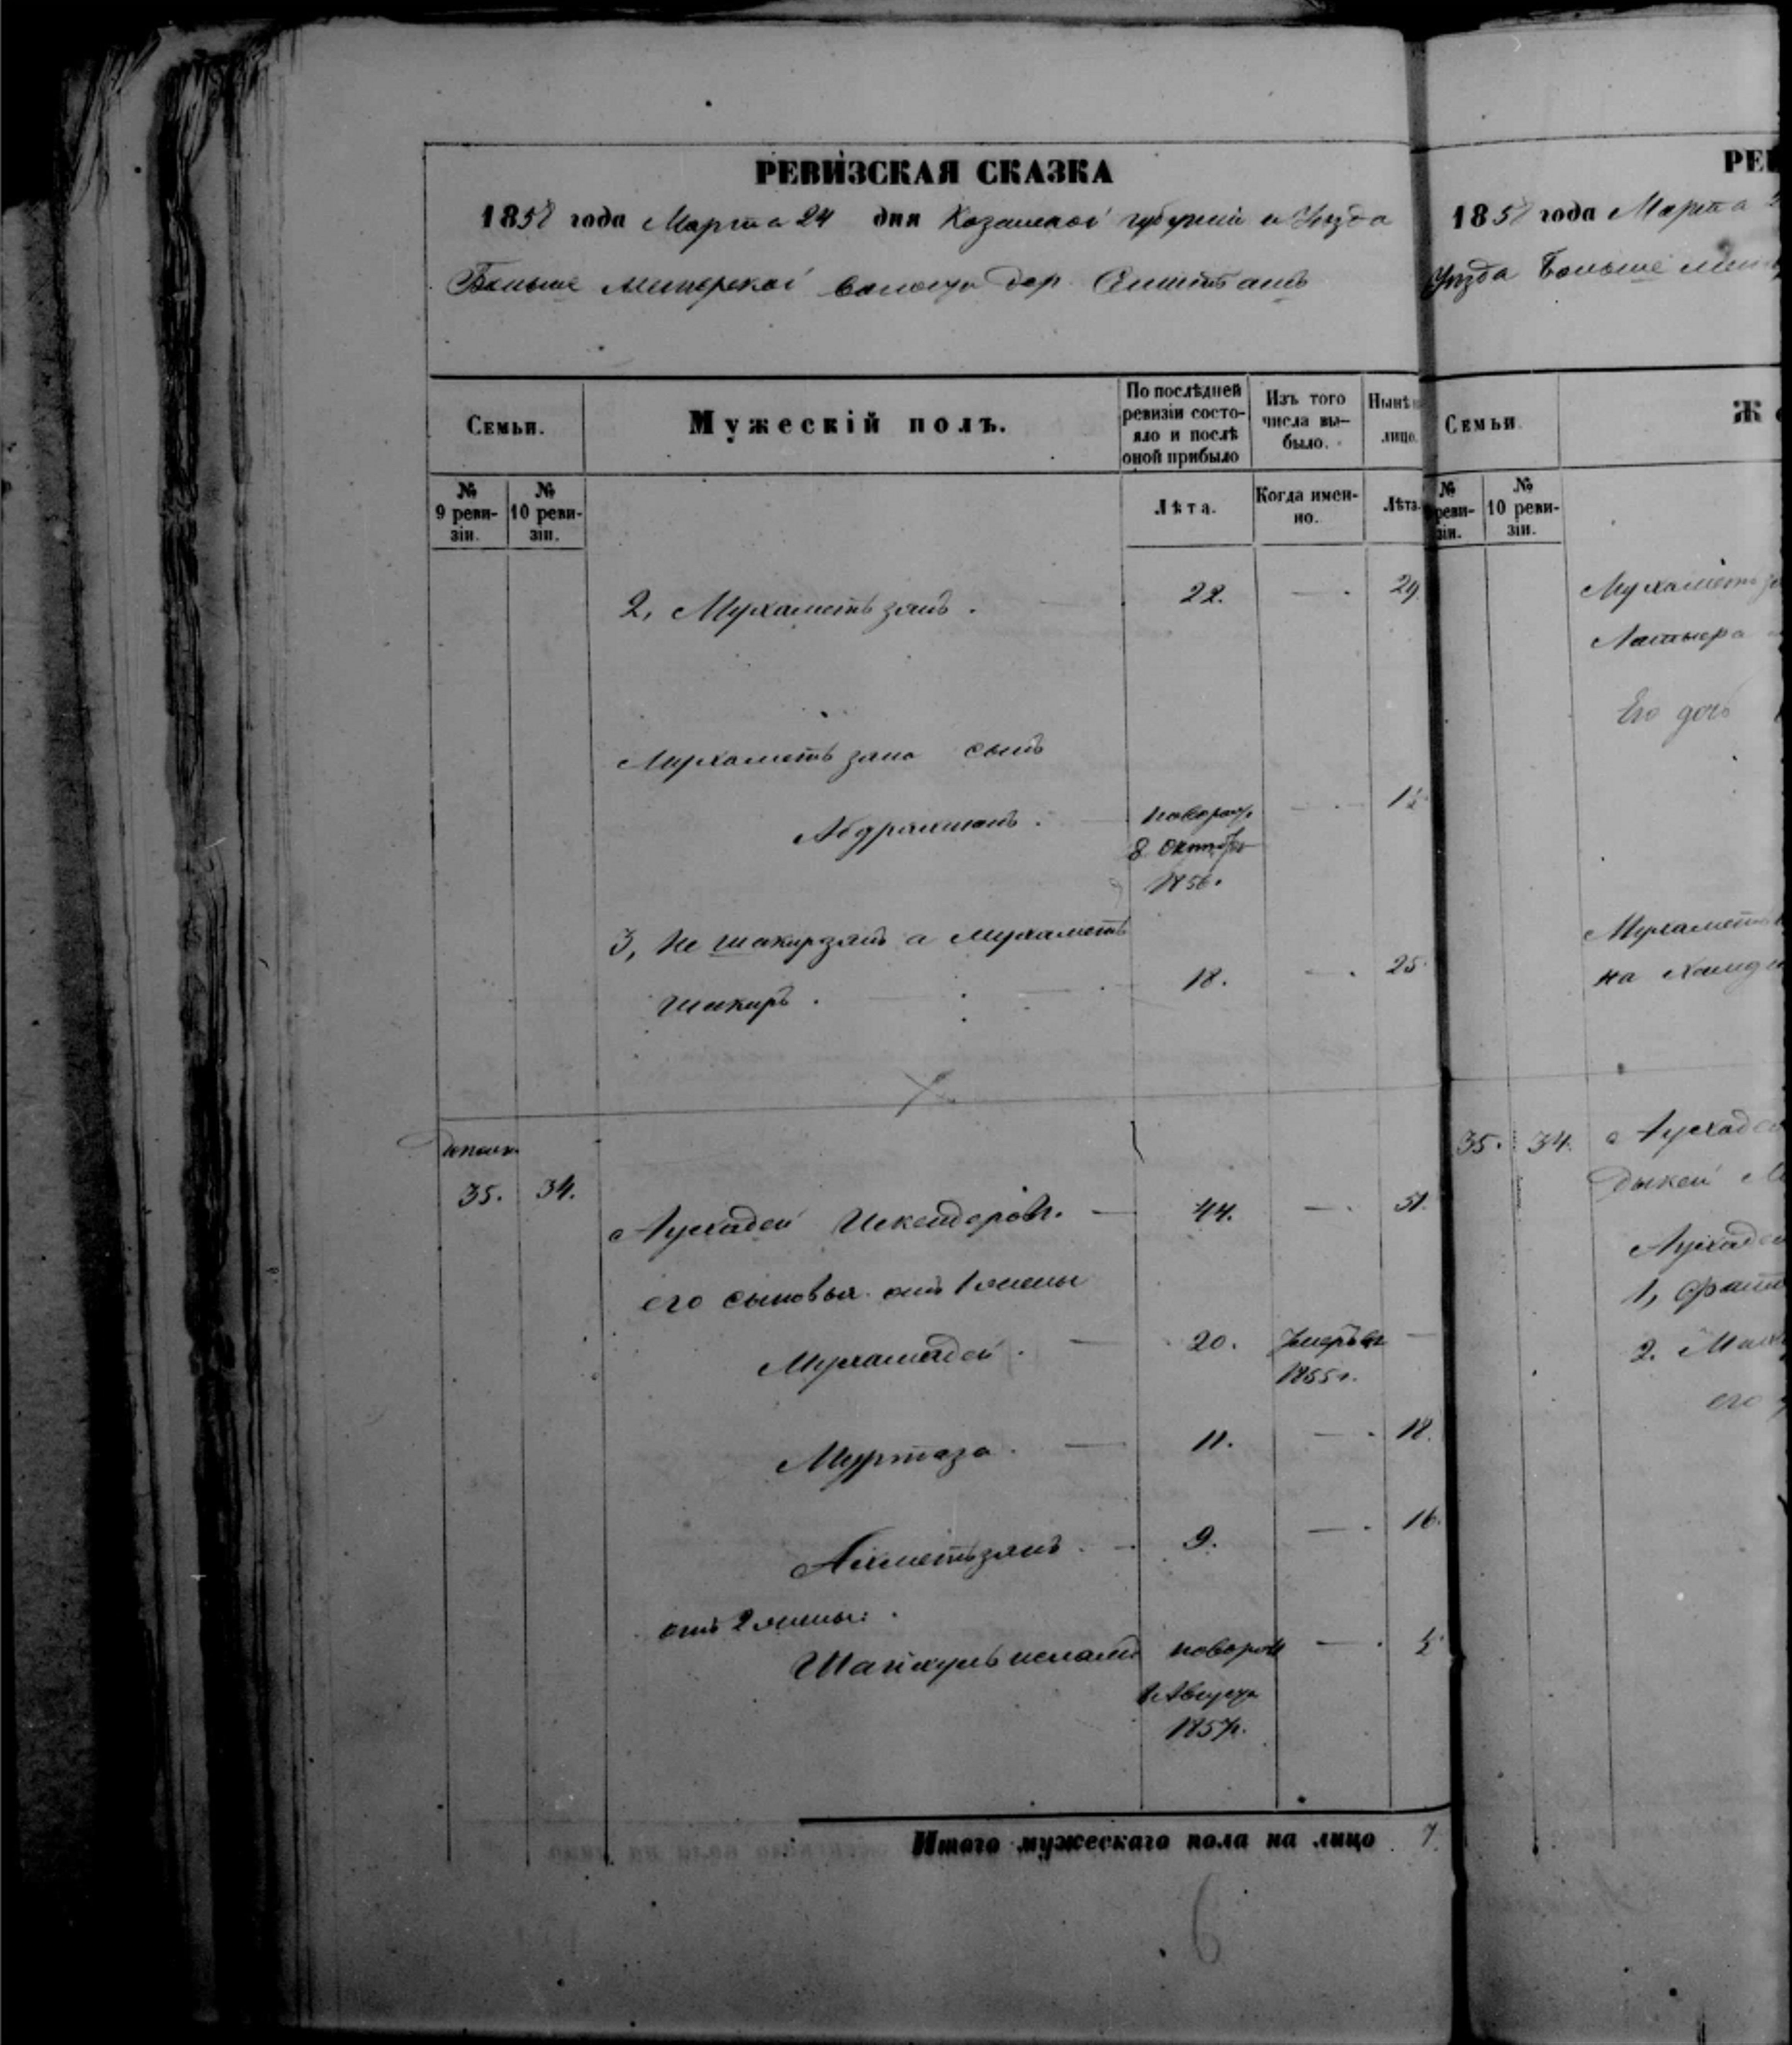 РЕВИЗСКАЯ СКАЗКА
1858 года Марта 24 дня Казанской губернии и Уезда
Больше Менгерской волости дер.
Семьи.
Мужескій полъ.
По послѣдней ревизіи состо-
яло и послѣ
оной прибыло
Изъ того
числа вы-
было.
Нынѣ
лицо.
№
9 реви-
зіи.
№
10 реви-
зіи.
Лѣта.
Когда имен-
но.
Лѣта.
2, Мухаметь зянъ . 22. — . 29.
Мухаметь зяна сынъ
Абдрахманъ . новорож. — .
8 Октября
1856.
3, Не шакирзянъ а Мухаметь
Шакиръ . 18. — . 25.
35. 34.
Аухадей Искендеровъ. — 44. — . 51.
его сыновья отъ 1 жены
Мухамадей . — 20. Умеръ въ —
1855 г.
Муртаза . — 11. — . 18.
Ахметьзянъ . — 9. — . 16.
отъ 2 жены:
Шайхульисламъ новорож — .
Августа
1857г.
Итого мужескаго пола на лицо 7.
6
РЕВ
1858 года Марта 2
Уезда Больше Мен
Семьи.
Ж
№
реви-
зіи.
№
10 реви-
зіи.
Мухаметь зя
Его дочь
Мухаметь
на
35. 34. Аухаде
Аухаде
1,
2.
его